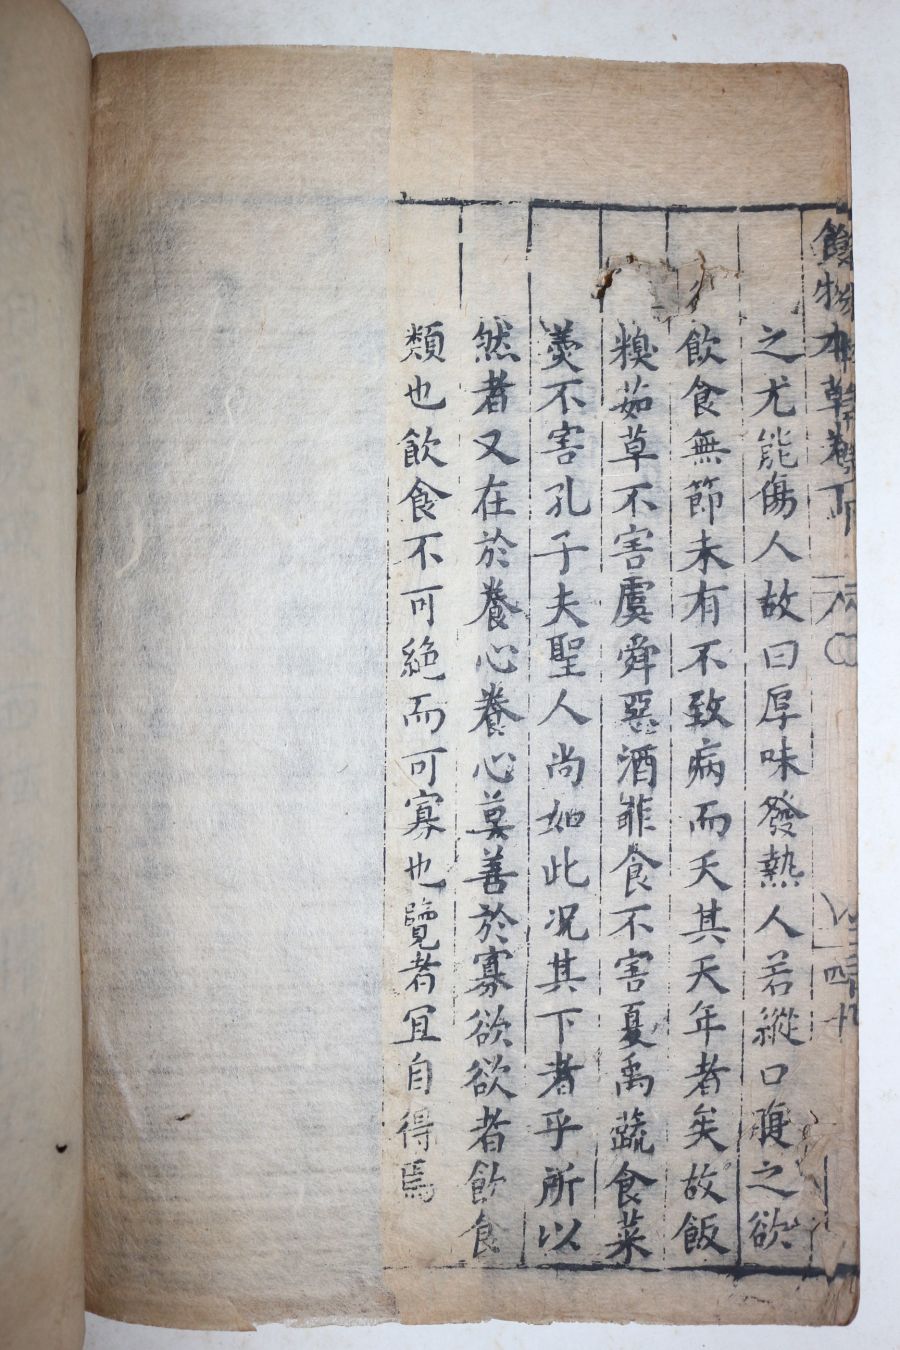 食物本草卷下
之尤能傷人故曰厚味發熱人若縱口腹之欲
飲食無節未有不致病而夭其天年者矣故飯
糗茹草不害虞舜惡酒菲食不害夏禹蔬食菜
羮不害孔子夫聖人尚如此况其下者乎所以
然者又在於養心養心莫善於寡欲欲者飲食
類也飲食不可絶而可寡也覽者宜自得焉